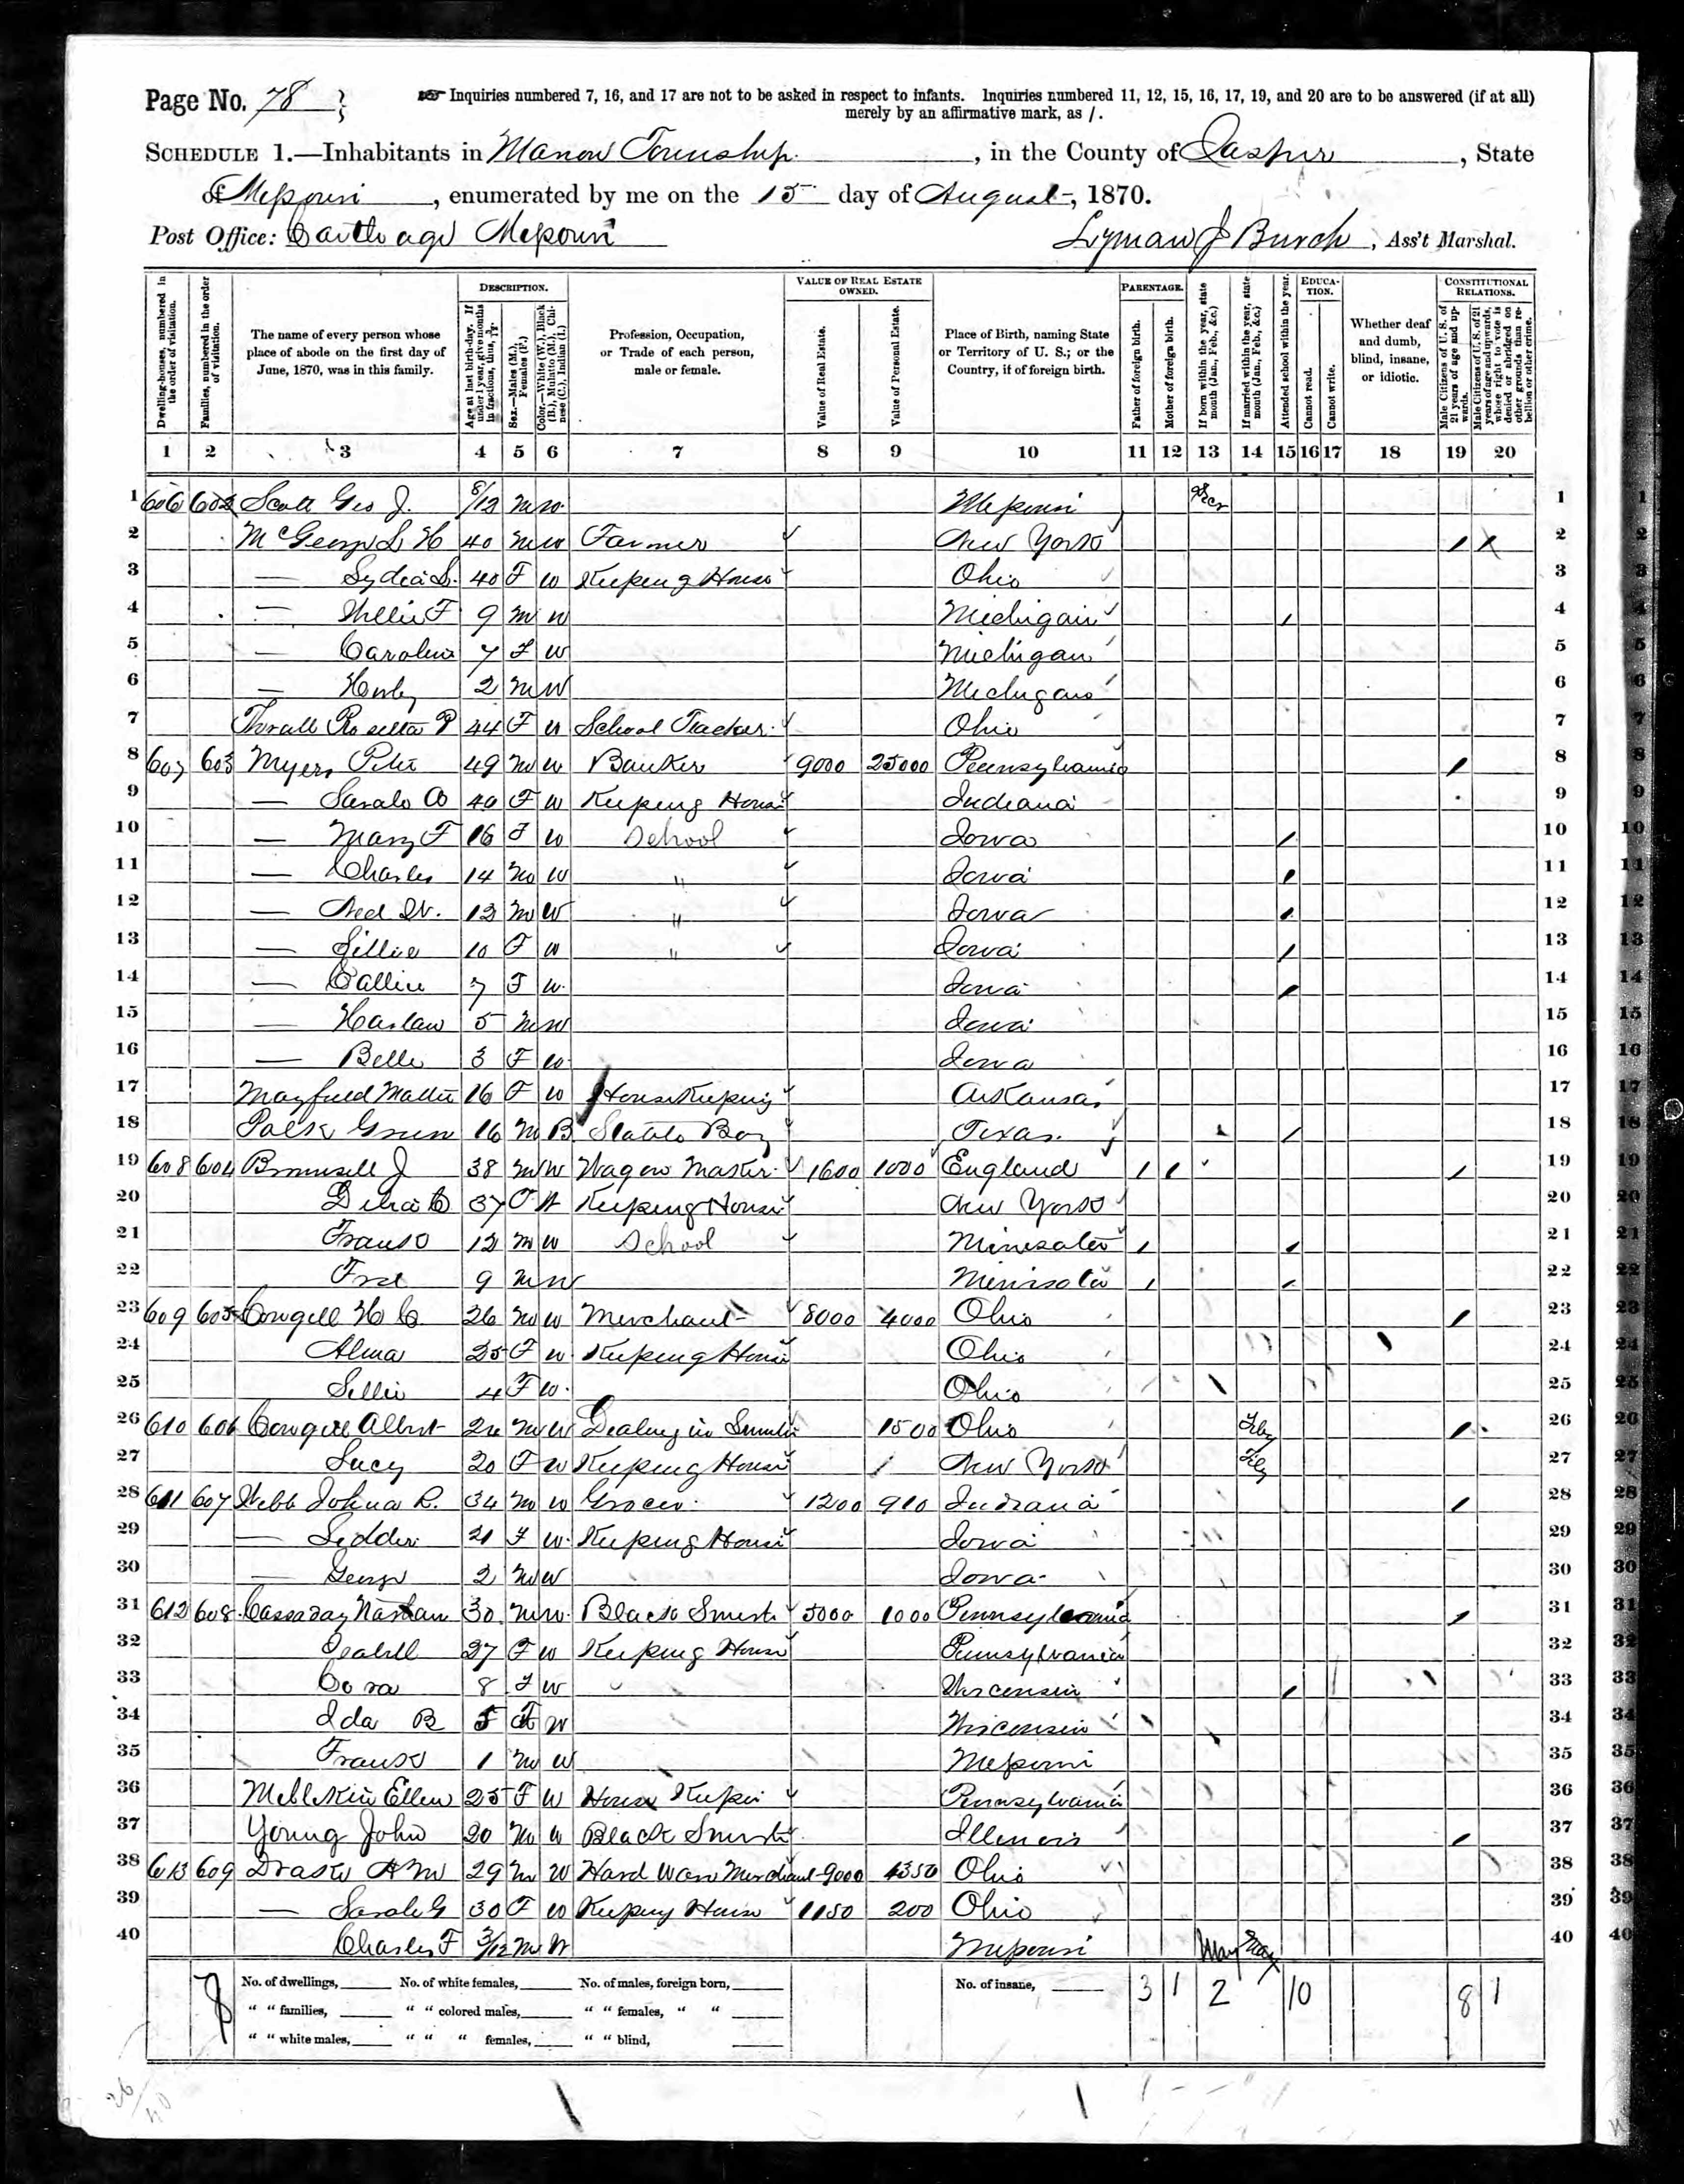 Page No. 78
Inquiries numbered 7, 16, and 17 are not to be asked in respect to infants. Inquiries numbered 11, 12, 15, 16, 17, 19, and 20 are to be answered (if at all)
merely by an affirmative mark, as /.
SCHEDULE 1.—Inhabitants in Marion Township, in the County of Jasper, State
of Missouri, enumerated by me on the 15 day of August, 1870.
Post Office: Carthage Missouri Lyman J Burch, Ass't Marshal.
Dwelling-houses, numbered in the order of visitation.
Families, numbered in the order of visitation.
The name of every person whose place of abode on the first day of June, 1870, was in this family.
DESCRIPTION.
Age at last birth-day. If under 1 year, give months in fractions, thus, 3/12.
Sex.—Males (M.), Females (F.)
Color.—White (W.), Black (B.), Mulatto (M.), Chinese (C.), Indian (I.)
Profession, Occupation, or Trade of each person, male or female.
VALUE OF REAL ESTATE OWNED.
Value of Real Estate.
Value of Personal Estate.
Place of Birth, naming State or Territory of U. S.; or the Country, if of foreign birth.
PARENTAGE.
Father of foreign birth.
Mother of foreign birth.
If born within the year, state month (Jan., Feb., &c.)
If married within the year, state month (Jan., Feb., &c.)
Attended school within the year.
EDUCATION.
Cannot read.
Cannot write.
Whether deaf and dumb, blind, insane, or idiotic.
CONSTITUTIONAL RELATIONS.
Male Citizens of U. S. of 21 years of age and upwards.
Male Citizens of U. S. of 21 years of age and upwards, whose right to vote is denied or abridged on other grounds than rebellion or other crime.
1 2 3 4 5 6 7 8 9 10 11 12 13 14 15 16 17 18 19 20
1 606 602 Scott Geo J. 8/12 M W Missouri 1
2 L H 40 M W Farmer New York / / 2
3 — Lydia S. 40 F W Keeping House Ohio 3
4 — Willie F 9 M W Michigan / 4
5 — Caroline 7 F W Michigan 5
6 — 2 M W Michigan 6
7 Thrall Rosetta P 44 F W School Teacher Ohio 7
8 607 603 Myers Peter 49 M W Banker 9000 25000 Pennsylvania / 8
9 — Sarah 40 F W Keeping House Indiana 9
10 — Mary F 16 F W School Iowa / 10
11 — Charles 14 M W " Iowa / 11
12 — Ned W. 12 M W " Iowa / 12
13 — Lillie 10 F W " Iowa / 13
14 — Callie 7 F W Iowa / 14
15 — Harlan 5 M W Iowa 15
16 — Belle 3 F W Iowa 16
17 Mayfield Mattie 16 F W House Keeping Arkansas 17
18 Green 16 M B Stable Boy Texas / 18
19 608 604 J 38 M W Wagon Master 1600 1000 England / / / 19
20 37 F W Keeping House New York 20
21 Frank 12 M W School Minesota / / 21
22 Fred 9 M W Minisota / / 22
23 609 605 Cowgill H C 26 M W Merchant 8000 4000 Ohio / 23
24 Alma 25 F W Keeping House Ohio 24
25 Lillie 4 F W Ohio 25
26 610 606 Cowgill Albert 24 M W Dealing in 1500 Ohio Feby / 26
27 Lucy 20 F W Keeping House New York Feby 27
28 611 607 Webb Joshua R. 34 M W Grocer 1200 910 Indiana / 28
29 — 21 F W Keeping House Iowa 29
30 — George 2 M W Iowa 30
31 612 608 Cassaday Nathan 30 M W Black Smith 5000 1000 Pennsylvania / 31
32 Isabell 27 F W Keeping House Pennsylvania 32
33 Cora 8 F W Wisconsin / 33
34 Ida B 5 F W Wisconsin 34
35 Frank 1 M W Missouri 35
36 Ellen 25 F W House Keeper Pennsylvania 36
37 Young John 20 M W Black Smith Illinois / 37
38 613 609 Drake A M 29 M W Hard Ware Merchant 9000 4350 Ohio 38
39 — Sarah G 30 F W Keeping House 1150 200 Ohio 39
40 Charles F 3/12 M W Missouri May May 40
No. of dwellings, No. of white females, No. of males, foreign born, No. of insane, 3 1 2 10 8 1
8
" " families, " " colored males, " " females, " "
" " white males, " " " females, " " blind,